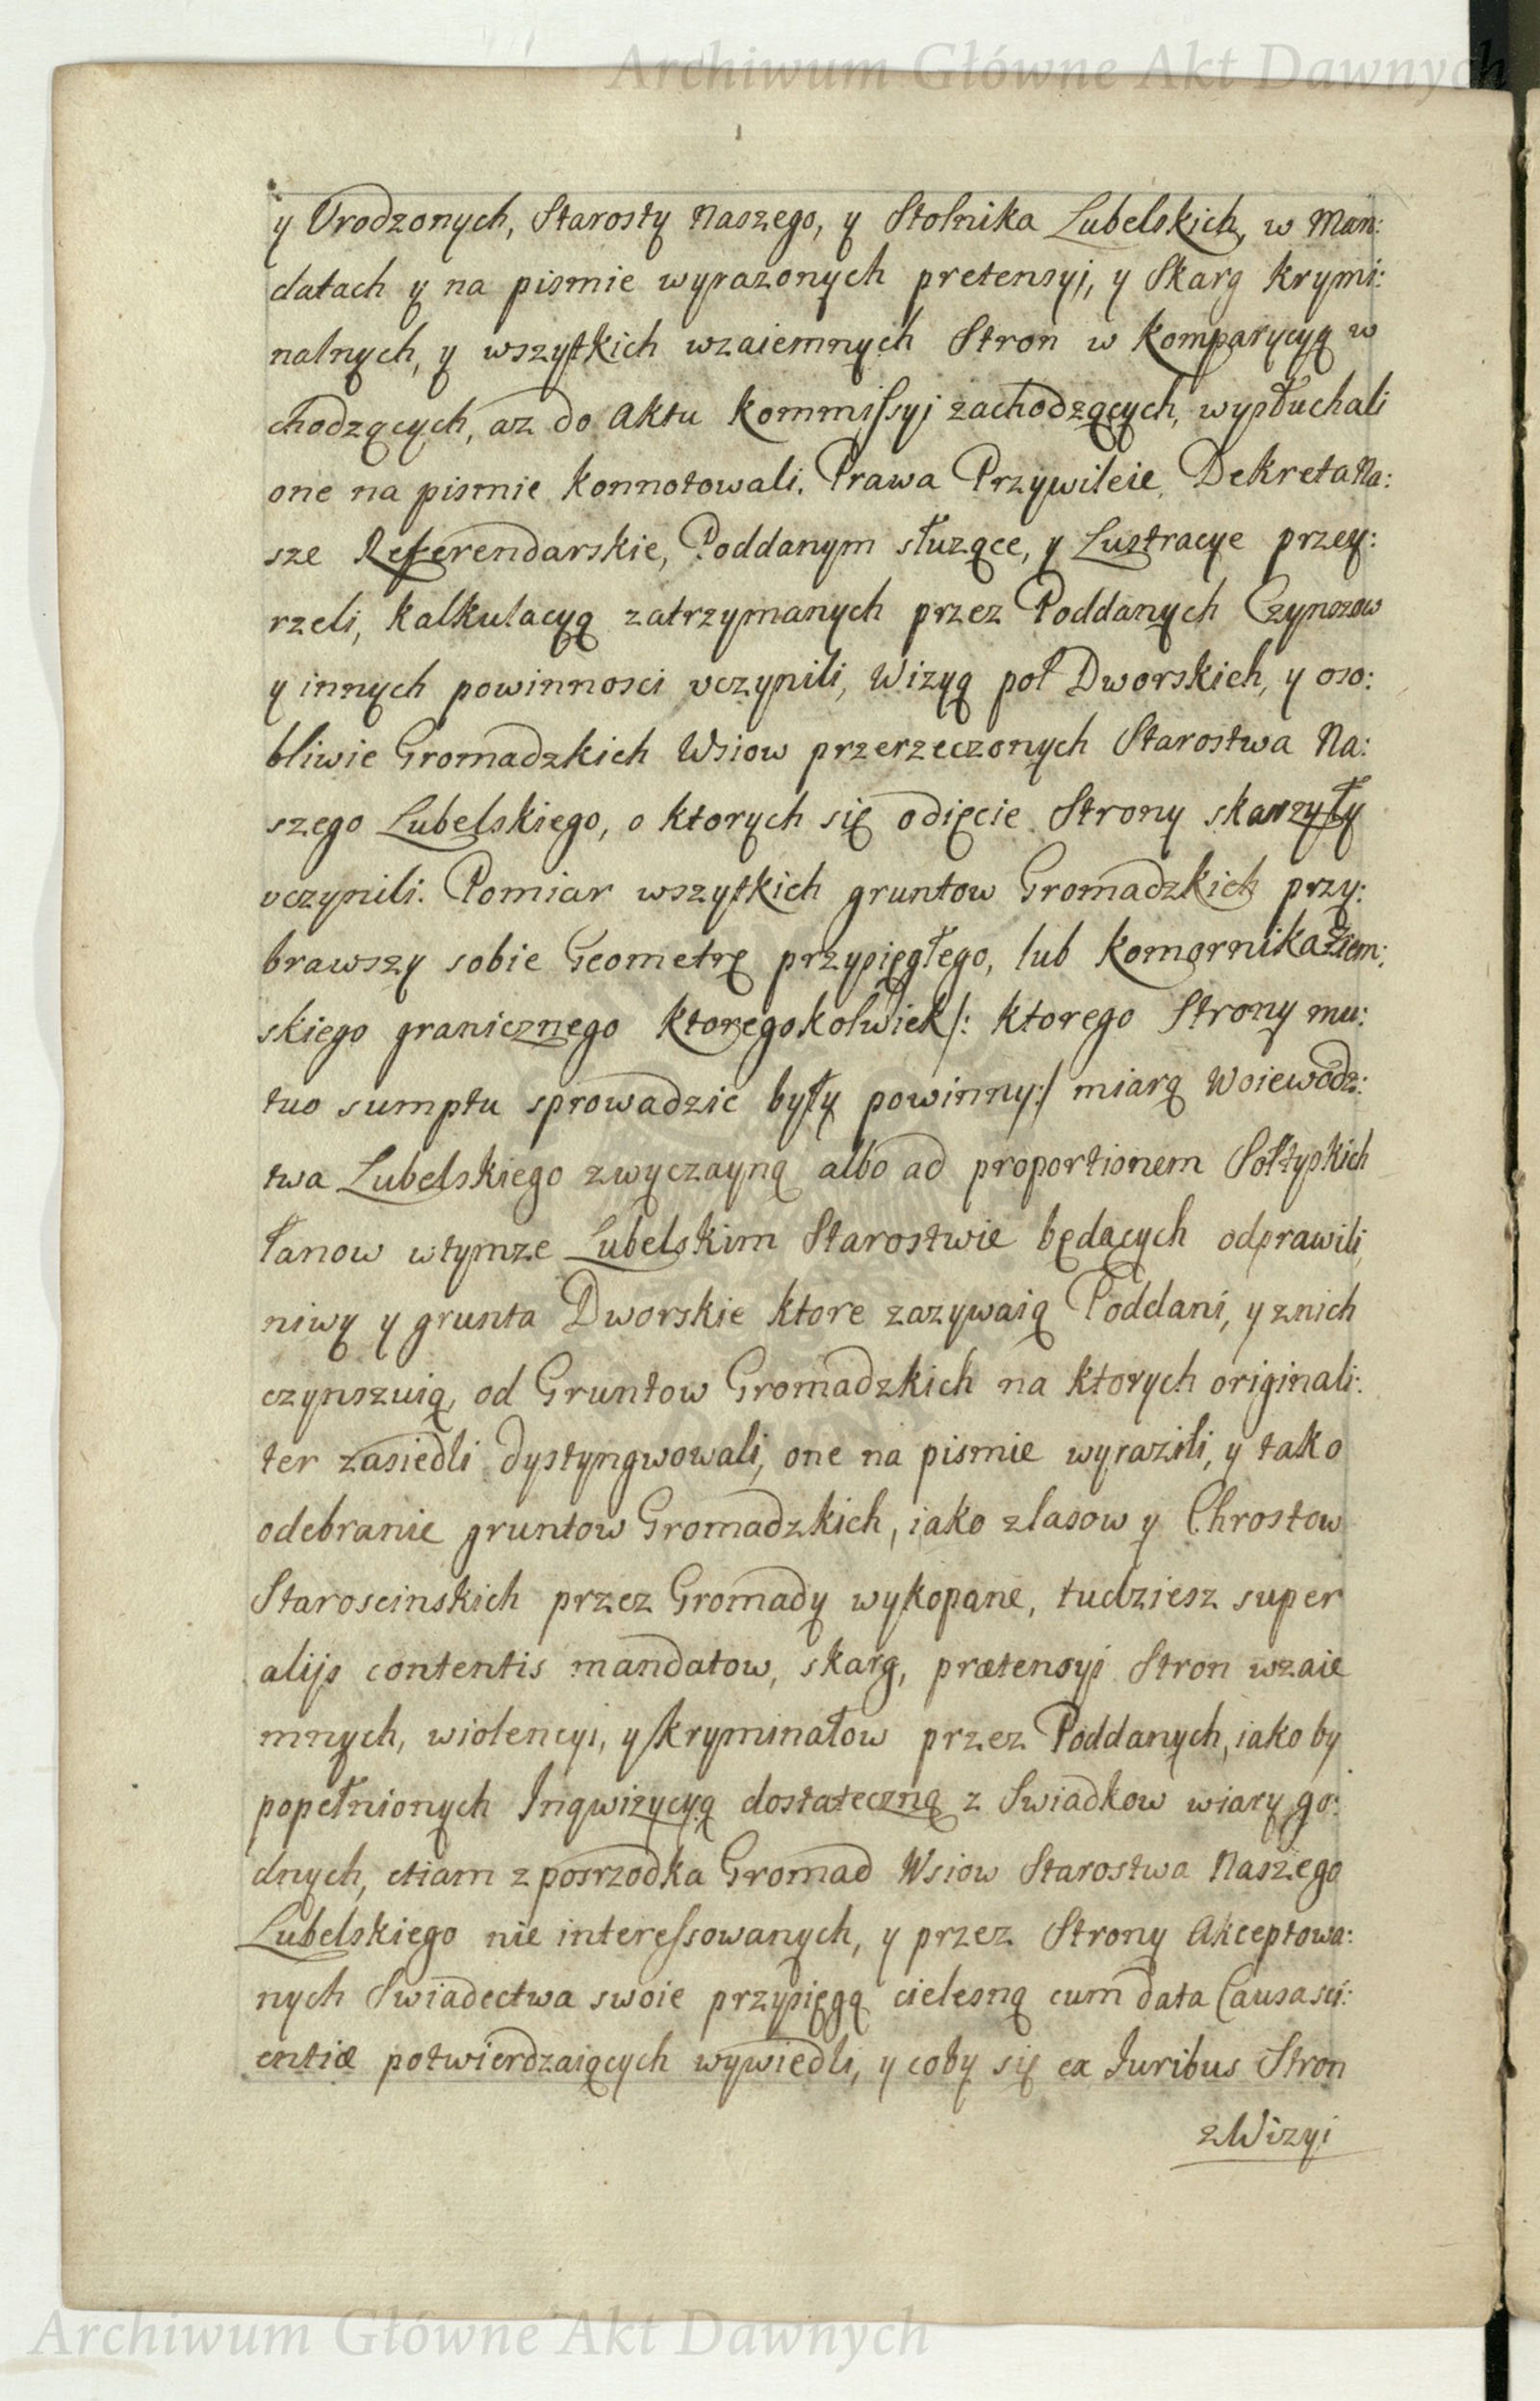 Archiwum Główne Akt Dawnych
y Urodzonych, Starosty naszego, y Stolnika Lubelskich, w Man:
datach y na pismie wyrazonych pretensyi, y Skarg krymi:
nalnych, y wszytkich wzaiemnych Stron w komparycyą w
chodzących, az do Aktu kommissyi zachodzących, wysłuchali
one na pismie konnotowali. Prawa Przywileie, Dekreta Na:
sze Referendarskie, Poddanym służące, y Lustracye przey:
rzeli, kalkulacyą zatrzymanych przez Poddanych Czynszow
y innych powinnosci uczynili, Wizyą pol Dworskich, y oso:
bliwie Gromadzkich Wsiow przerzeczonych Starostwa Na:
szego Lubelskiego, o ktorych się odięcie Strony skarzyły
uczynili. Pomiar wszytkich gruntow Gromadzkich przy:
brawszy sobie Geometrę przysięgłego, lub komornika Ziem:
skiego granicznego ktoregokolwiek /: ktorego Strony mu:
tuo sumptu sprowadzic były powinny :/ miarą Woiewodz:
twa Lubelskiego zwyczayną albo ad proportionem Sołtyskich
łanow wtymze Lubelskim Starostwie będących odprawili,
niwy y grunta Dworskie ktore zazywaią Poddani, y znich
czynszuią, od Gruntow Gromadzkich na ktorych originali:
ter zasiedli dystyngwowali, one na pismie wyrazili, y tako
odebranie gruntow Gromadzkich, iako zlasow y Chrostow
Staroscinskich przez Gromady wykopane, tudziesz super
alijs contentis mandatow, skarg, prætensyi Stron wzaie
mnych, wiolencyi, y kryminałow przez Poddanych, iako by
popełnionych Inqwizycyą dostateczną z Swiadkow wiary go:
dnych, etiam z posrzodka Gromad Wsiow Starostwa Naszego
Lubelskiego nie interessowanych, y przez Strony Akceptowa:
nych Swiadectwa swoie przysięgą cielesną cum data Causa sci:
entiæ potwierdzaiących wywiedli, y coby się ex Iuribus Stron
z Wizyi
Archiwum Główne Akt Dawnych